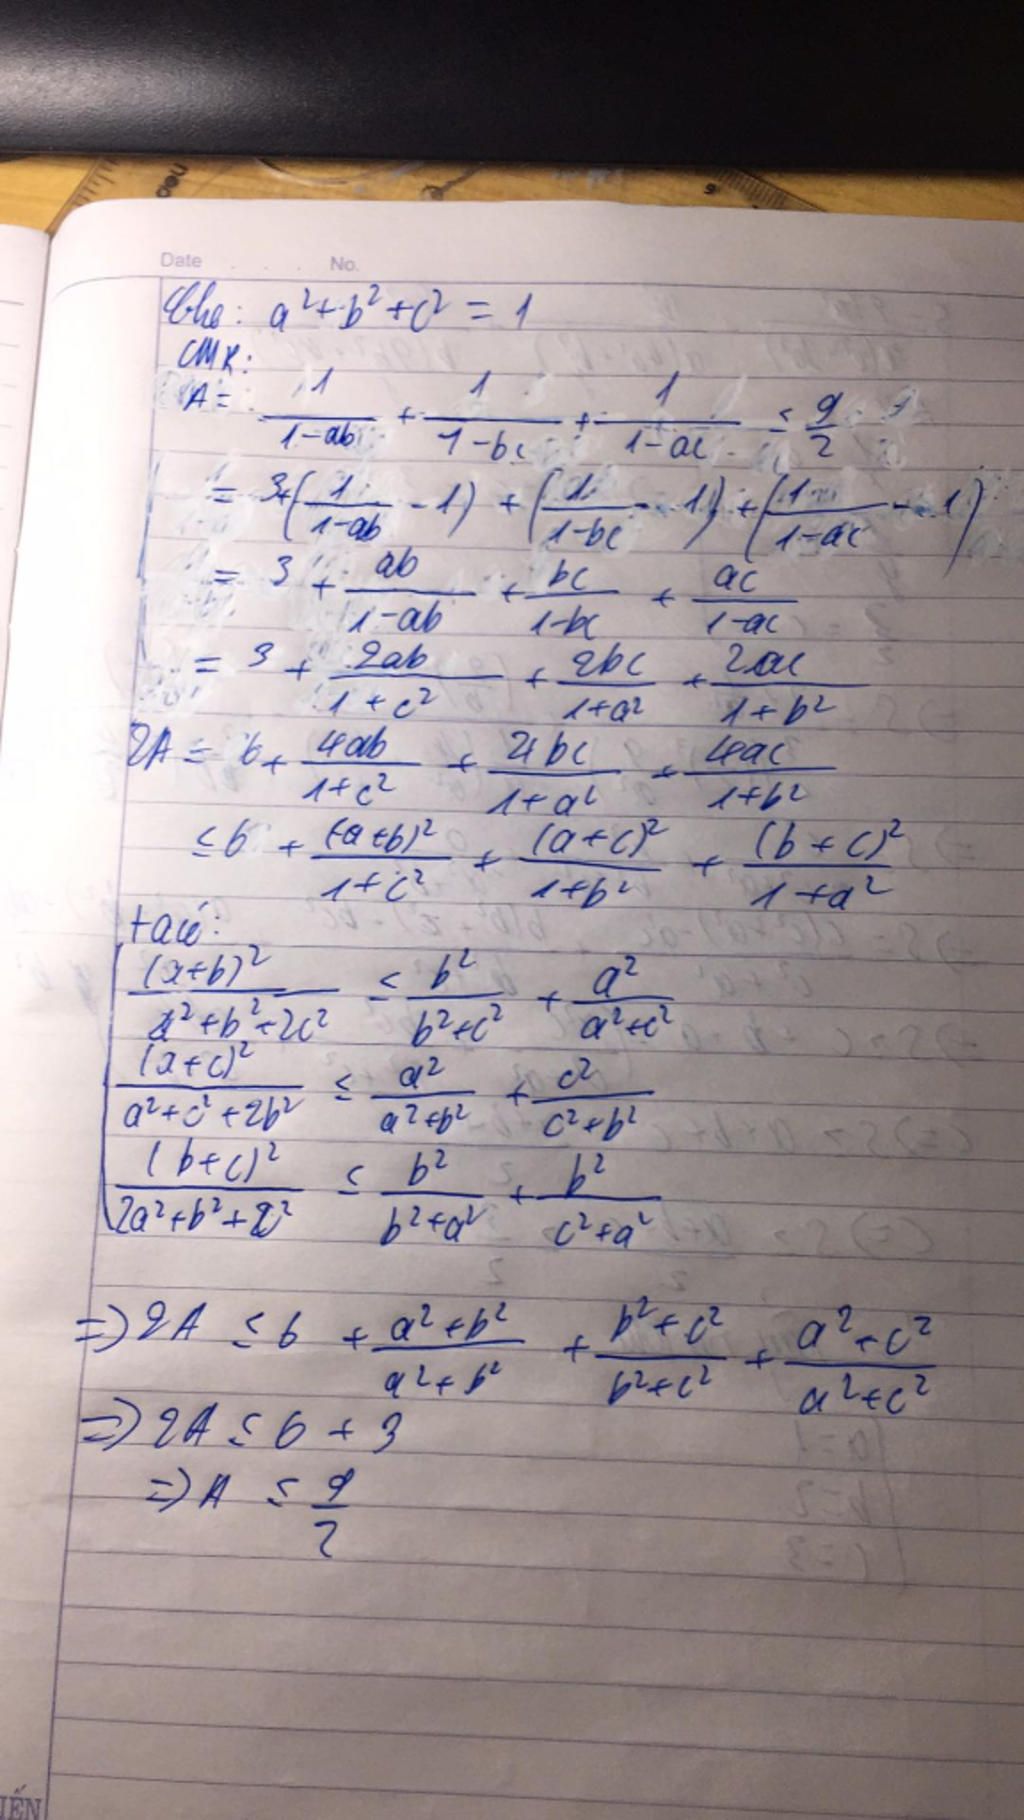 Date . . . No.
Cho: a² + b² + c² = 1
CMR:
A = 1/(1-ab) + 1/(1-bc) + 1/(1-ac) ≤ 9/2
= 3 + (1/(1-ab) - 1) + (1/(1-bc) - 1) + (1/(1-ac) - 1)
= 3 + ab/(1-ab) + bc/(1-bc) + ac/(1-ac)
= 3 + 2ab/(1+c²) + 2bc/(1+a²) + 2ac/(1+b²)
2A = 6 + 4ab/(1+c²) + 4bc/(1+a²) + 4ac/(1+b²)
≤ 6 + (a+b)²/(1+c²) + (a+c)²/(1+b²) + (b+c)²/(1+a²)
ta có:
(a+b)²/(a²+b²+2c²) ≤ b²/(b²+c²) + a²/(a²+c²)
(a+c)²/(a²+c²+2b²) ≤ a²/(a²+b²) + c²/(c²+b²)
(b+c)²/(2a²+b²+c²) ≤ b²/(b²+a²) + b²/(c²+a²)
=> 2A ≤ 6 + (a²+b²)/(a²+b²) + (b²+c²)/(b²+c²) + (a²+c²)/(a²+c²)
=> 2A ≤ 6 + 3
=> A ≤ 9/2
IẾN